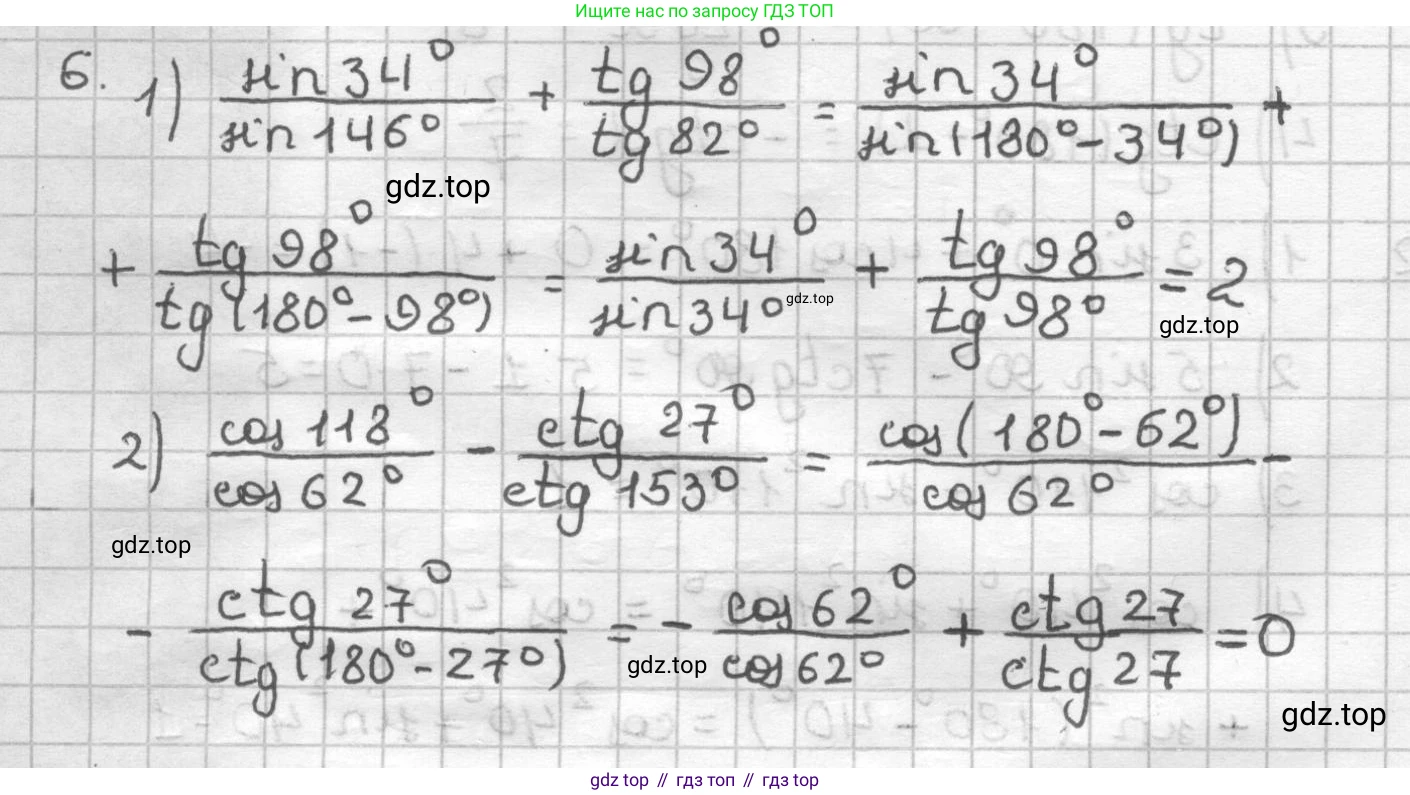 Ищите нас по запросу ГДЗ ТОП
6. 1) sin 34° / sin 146° + tg 98° / tg 82° = sin 34° / sin (180° - 34°) +
gdz.top
+ tg 98° / tg (180° - 98°) = sin 34° / sin 34° + tg 98° / tg 98° = 2
gdz.top
gdz.top
2) cos 118° / cos 62° - ctg 27° / ctg 153° = cos (180° - 62°) / cos 62° -
gdz.top
- ctg 27° / ctg (180° - 27°) = - cos 62° / cos 62° + ctg 27 / ctg 27 = 0
gdz.top
gdz.top
gdz top // гдз топ // гдз top